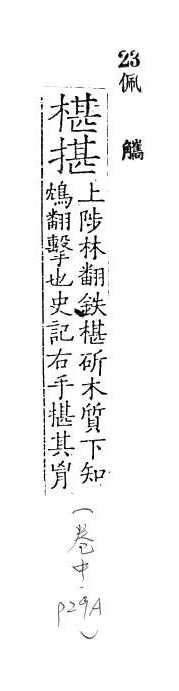 23
佩觿
椹揕
上陟林翻鉄椹斫木質下知
鴆翻擊也史記右手揕其胷
(卷中.
p29A)